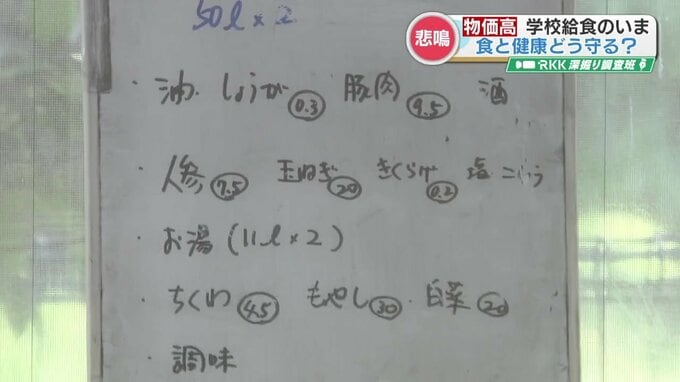 悲鳴 物価高 学校給食のいま
食と健康どう守る?
RKK 深掘り調査班
50ℓ×2
・油 しょうが 0.3 豚肉 9.5 酒
・人参 7.5 玉ねぎ 20 きくらげ 0.2 塩 こしょう
・お湯 (11ℓ×2)
・ちくわ 4.5 もやし 30 白菜 20
・調味